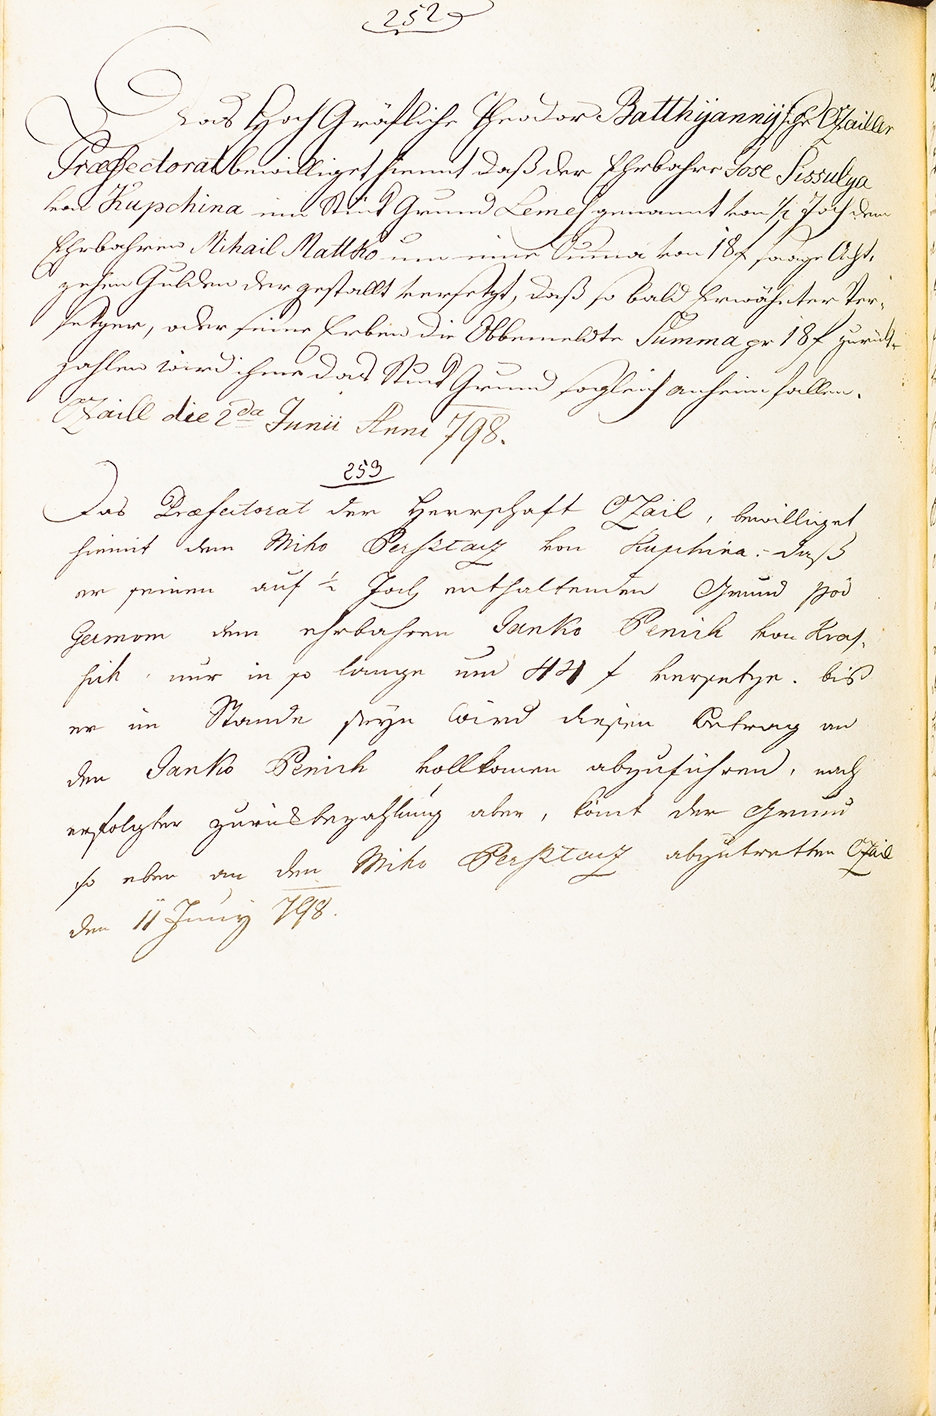 252
Das Hoch Gräfliche Theodor Batthÿannÿsche Ozailler
Præfectorat bewilliget hiemit daß der Ehrbahre Jose Sissulya
von Kupchina ein Stück Grund Lemesh genannt von 1/2 Joch dem
Ehrbahren Mihail Mattko um eine Suma von 18 f saage Acht,
zehen Gulden der gestallt versetzt, daß so bald Erwähnter Ver-
setzer, oder seine Erben die Obbemeldte Summa pr 18 f zurück-
zahlen wird ihme das Stück Grund sogleich anheim fallen.
Ozaill die 2da Junii Anni 798.
253
Das Præfectorat der Herrschaft Ozail, bewilliget
hiemit dem Miko von Kupchina. daß
er seinen auf 1/2 Joch enthaltenden Grund pod
dem ehrbahren Janko Penich von Kras,
sich nur in so lange um 44 f versetze. bis
er im Stande seyn wird diesen Betrag an
den Janko Penich vollkomen abzuführen, nach
erfolgter zurückbezahlung aber, kömt der Grund
so eben an den Miko abzutretten Ozail
den 11 Juny 798.